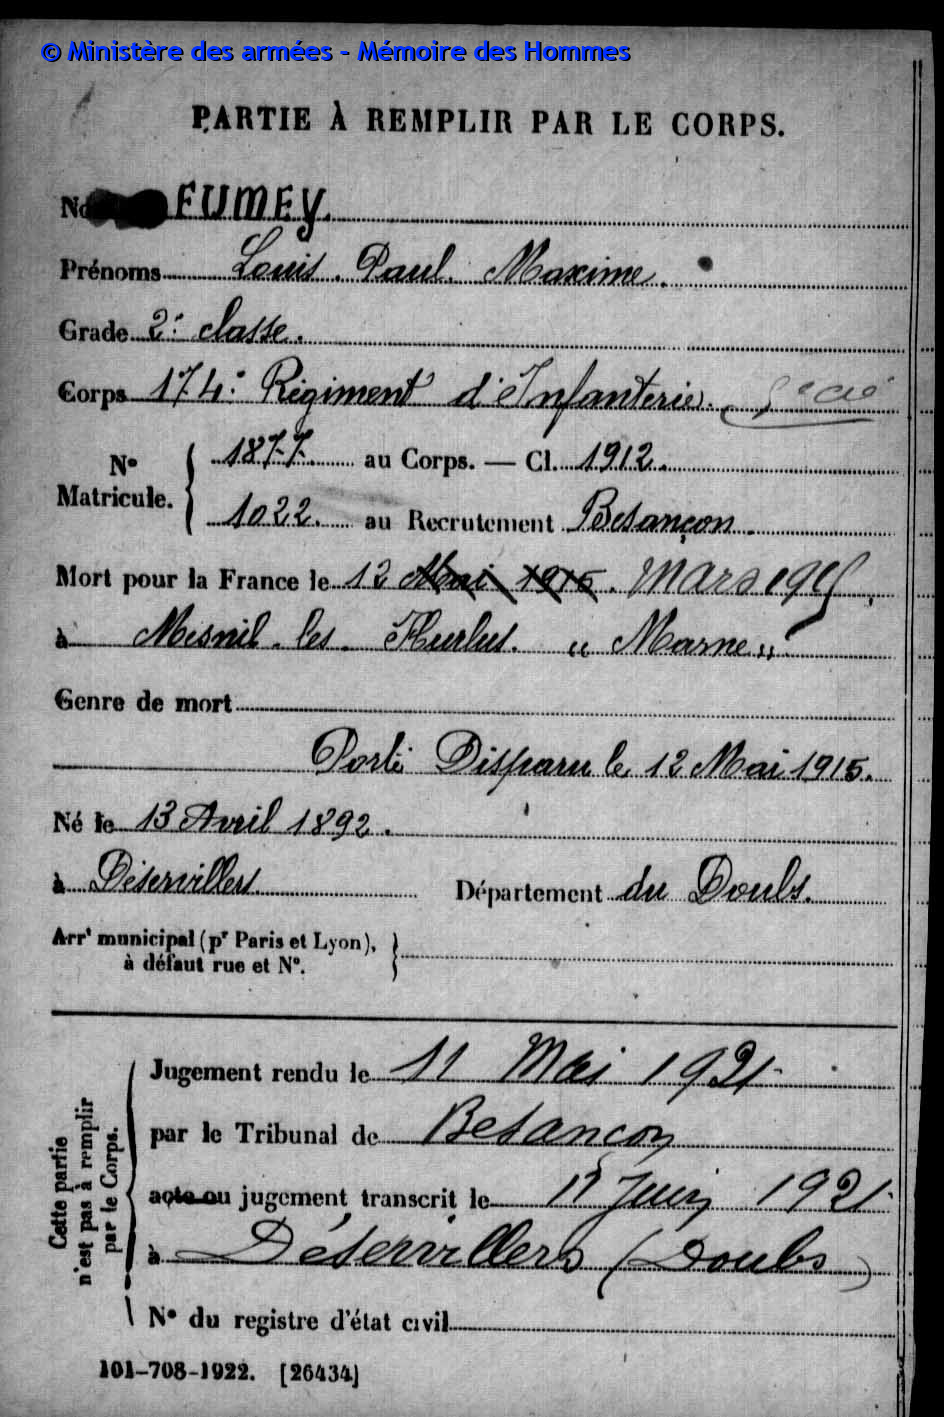 © Ministère des armées - Mémoire des Hommes
PARTIE À REMPLIR PAR LE CORPS.
FUMEY.
Prénoms Louis. Paul. Maxime.
Grade 2e classe.
Corps 174e Régiment d'Infanterie.
N° Matricule. 1877. au Corps. — Cl. 1912.
1022. au Recrutement Besançon.
Mort pour la France le 12 Mai 1915. Mars 1915.
à Mesnil-les-Hurlus. "Marne"
Genre de mort
Porté Disparu le 12 Mai 1915.
Né le 13 Avril 1892.
à Déservillers Département du Doubs.
Arrt municipal (pr Paris et Lyon),
à défaut rue et N°.
Cette partie n'est pas à remplir par le Corps.
Jugement rendu le 11 Mai 1921
par le Tribunal de Besançon
acte ou jugement transcrit le Juin 1921
à Déservillers (Doubs)
N° du registre d'état civil
101-708-1922. [26434]